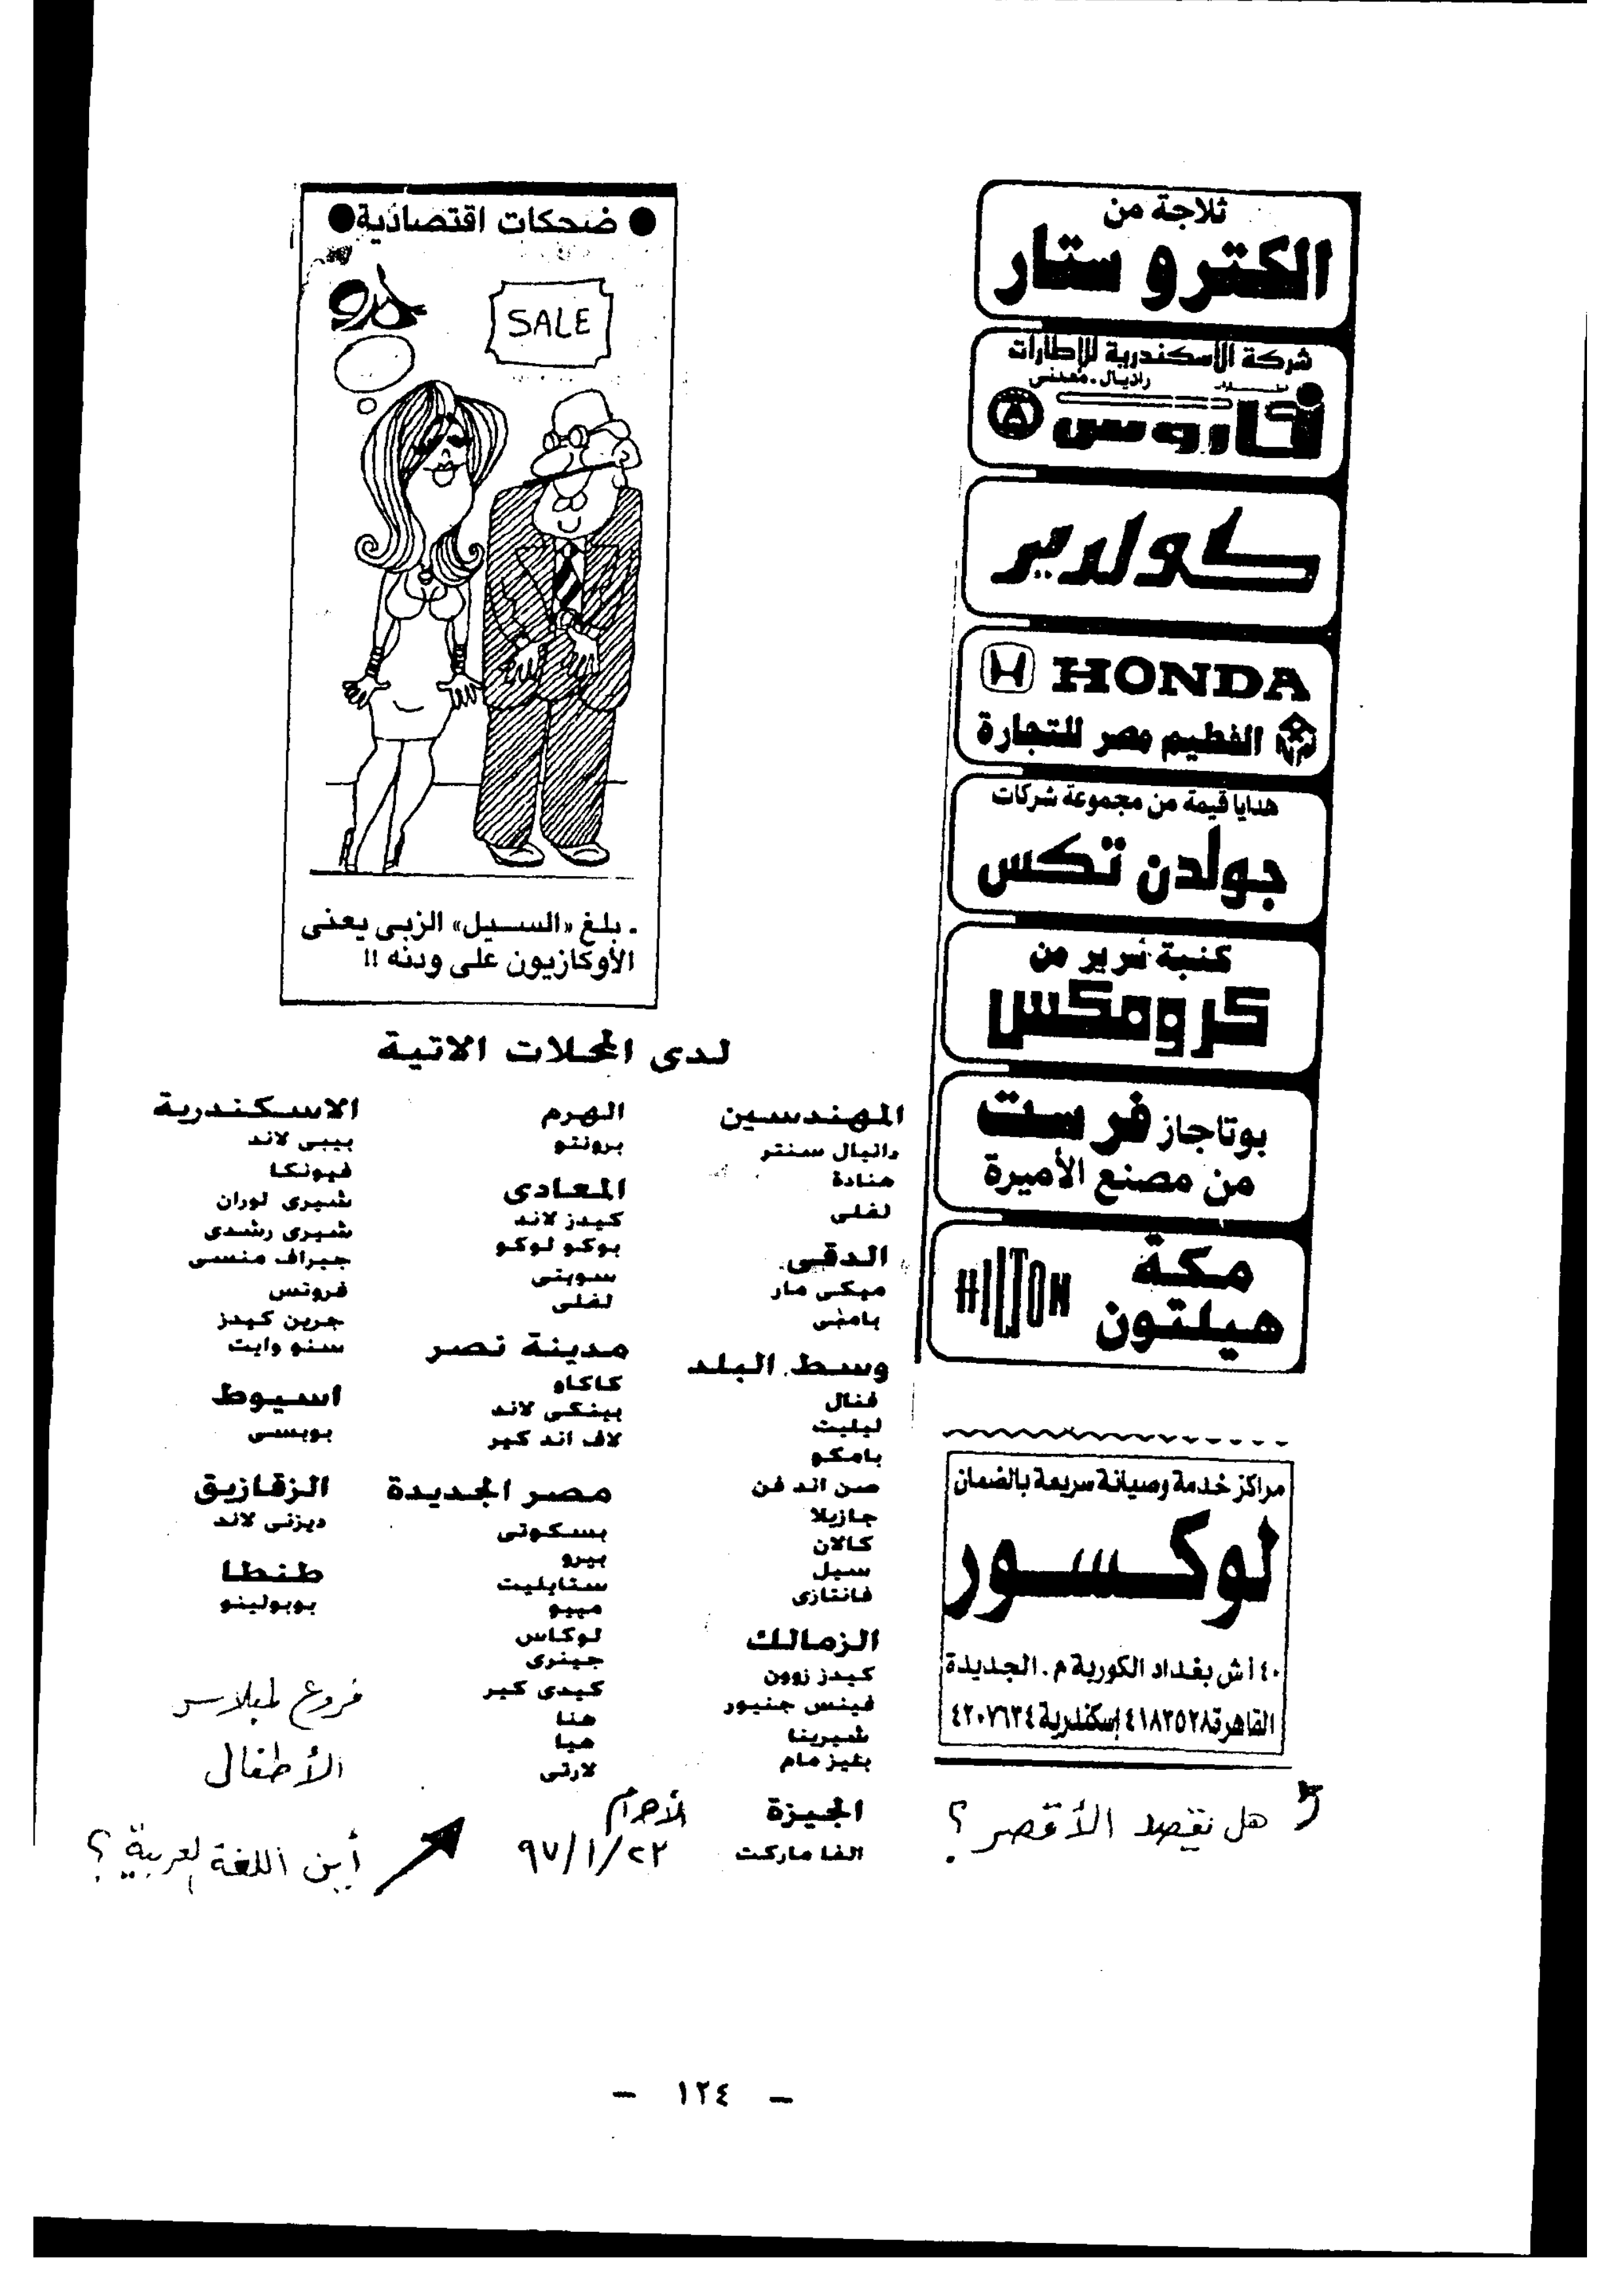 ثلاجة من
الكتروستار
شركة الاسكندرية للإطارات
راديال . معدنى
كاروس
كولدير
HONDA
الفطيم مصر للتجارة
هدايا قيمة من مجموعة شركات
جولدن تكس
كنبة سرير من
كرومكس
بوتاجاز فرست
من مصنع الأميرة
مكة
هيلتون
HILTON
مراكز خدمة وصيانة سريعة بالضمان
لوكسور
١٤٠ش بغداد الكوربة م. الجديدة
القاهرة٤١٨٢٥٢٨ إسكندرية ٤٢٠٧٦٢٤
هل نقصد الأقصر ؟
● ضحكات اقتصادية ●
SALE
ـ بلغ «السيل» الزبى يعنى
الأوكازيون على ودنه !!
لدى المحلات الاتية
المهندسين
دانيال سنتر
هنادة
لفلى
الدقى
ميكى مار
بامبى
وسط البلد
فنال
ليليت
بامكو
صن اند فن
جازيلا
كالان
سيل
فانتازى
الزمالك
كيدز زوون
فينس جنيور
شيرينا
بغيز مام
الجيزة
الفا ماركت
الهرم
برونتو
المعادى
كيدز لاند
بوكو لوكو
سويتى
لفلى
مدينة نصر
كاكاو
بينكى لاند
لاف اند كير
مصر الجديدة
بسكوتى
بيرو
ستايليت
ميبو
لوكاس
جينرى
كيدى كير
هنا
هيا
لارتى
الأهرام
٩٧/١/٢٢
الاسكندرية
بيبى لاند
فيونكا
شيرى لوران
شيرى رشدى
جيراف منسى
فروتس
جرين كيدز
سنو وايت
اسيوط
بوبسى
الزقازيق
ديزنى لاند
طنطا
بوبولينو
فروع لملابس
الأطفال
أين اللغة العربية ؟
- ١٢٤ -